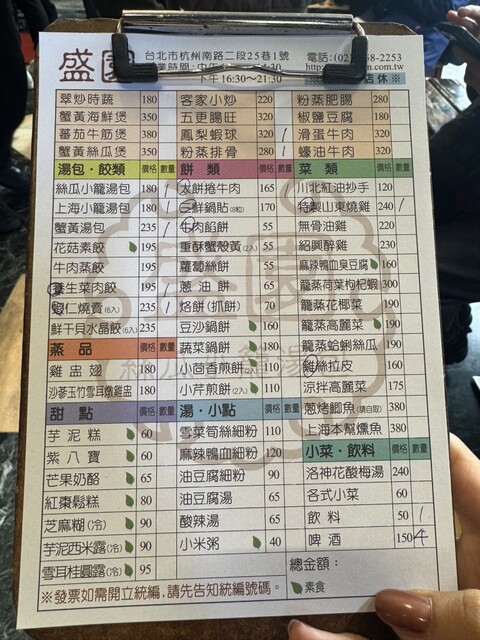 盛園
台北市杭州南路二段25巷1號
電話:(02) 58-2253
下午16:30~21:30
店休※
翠炒時蔬 180 客家小炒 220 粉蒸肥腸 280
蟹黃海鮮煲 350 五更腸旺 320 椒鹽豆腐 180
蕃茄牛筋煲 380 鳳梨蝦球 320 / 滑蛋牛肉 320
蟹黃絲瓜煲 350 粉蒸排骨 280 \ 蠔油牛肉 320
湯包·餃類 價格 數量 餅類 價格 數量 菜類 價格 數量
絲瓜小籠湯包 180 / 大餅捲牛肉 165 / 川北紅油抄手 120
上海小籠湯包 180 / 三鮮鍋貼(8粒) 170 特製山東燒雞 240 /
蟹黃湯包 235 / 牛肉餡餅 55 無骨油雞 220
花菇素餃 195 重酥蟹殼黃(2入) 55 紹興醉雞 230
牛肉蒸餃 195 蘿蔔絲餅 55 麻辣鴨血臭豆腐 160
養生菜肉餃 195 / 蔥油餅 65 籠蒸荷葉枸杞蝦 300
蝦仁燒賣(6入) 235 / 烙餅(抓餅) 70 籠蒸花椰菜 190
鮮干貝水晶餃(6入) 235 豆沙鍋餅 160 籠蒸高麗菜 190
蒸品 價格 數量 蔬菜鍋餅 180 籠蒸蛤蜊絲瓜 190
雞盅翅 180 小茴香煎餅(2入) 110 雞絲拉皮 160
沙蔘玉竹雪耳燉雞盅 180 小芹煎餅(2入) 110 涼拌高麗菜 175
甜點 價格 數量 湯·小點 價格 數量 蔥烤鯽魚(請自取) 380
芋泥糕 60 雪菜筍絲細粉 110 上海本幫燻魚 380
紫八寶 60 麻辣鴨血細粉 120 小菜·飲料 價格 數量
芒果奶酪 65 油豆腐細粉 90 洛神花酸梅湯 240
紅棗鬆糕 80 油豆腐湯 65 各式小菜 60
芝麻糊(冷) 90 酸辣湯 65 飲料 50 1
芋泥西米露(冷) 90 小米粥 40 啤酒 150 4
雪耳桂圓露(冷) 95 總金額:
素食
※發票如需開立統編,請先告知統編號碼。